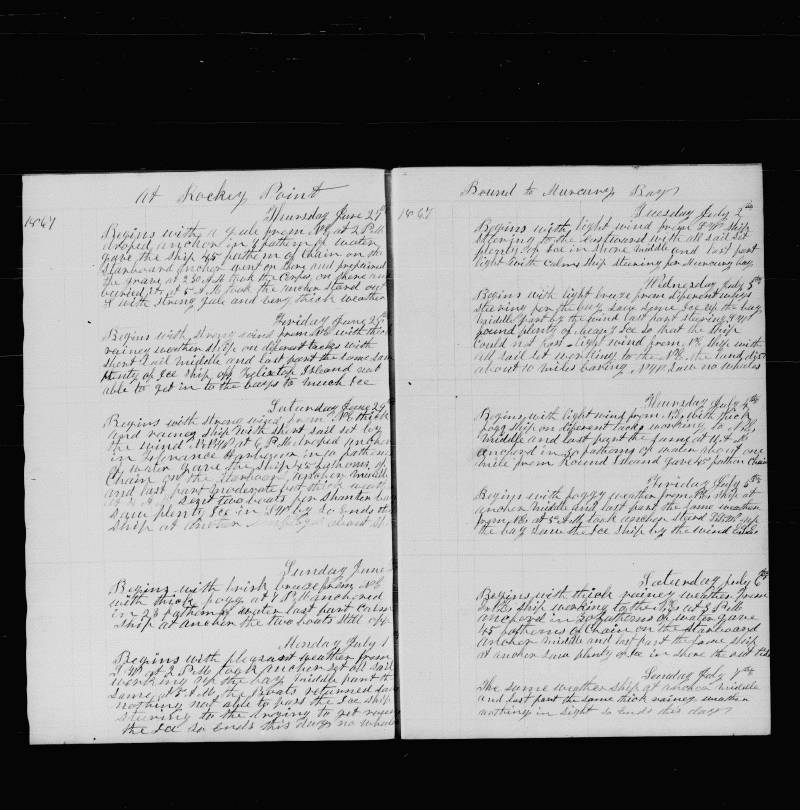 At Rockey Point
1867
Thursday June 27th
Begins with a gale from NE at 2 P.M
droped anchor in 7 fathom of water
gave the ship 45 fathom of chain on the
Starboard anchor went on shore and prepaired
the grave at 2.30 P.M took the Corps on shore and
buried it at 5 A.M took the anchor stand out
with strong gale and very thick weather
Friday June 28th
Begins with strong wind from NE with thick
rainey weather ship on different tacks with
short sail middle and last part the same saw
Plenty of Ice ship off Island not
able to get in to the to much Ice
Saturday June 29th
Begins with strong wind from NE thick
and rainey ship with short sail set by
the wind at 6 P.M droped anchor
in Harbour in 10 fathoms
of water gave the ship 45 fathoms of
Chain on the Starboard anchor middle
and last part moderate but thick
sent two boats for Shantar bay
saw plenty Ice in SW by so Ends th
ship at anchor
Sunday June
Begins with brisk breeze from NE
with thick fogg at 7 P.M anchored
in 23 fathoms water last part calm
ship at anchor the two boats still off
Monday July 1
Begins with pleasant weather from
S.W. at 2 P.M took anchor set all sail
working up the bay middle part the
same at A.M the Boats returned saw
nothing not able to pass the Ice ship
steering to the
the Ice so Ends this day no whales
Bound to Bay
1867
Tuesday July 2th
Begins with light wind from SW ship
steering to the Eastward with all sail set
plenty of Ice in shore middle and last part
light with calms ship steering for bay
Wednesday July 3th
Begins with light breeze from diferent ways
steering for the bay saw some Ice up the bay
middle part by the wind last part steering SW
found plenty of heavy Ice so that the ship
could not pass light wind from NE ship with
all sail set working to the NE the land dist
about 10 miles baring NW saw no whales
Thursday July 4th
Begins with light wind from NE with thick
fogg ship on diferent tacks working to NE
Middle and last part the same at
anchord in 30 fathoms of water about one
mile from Round Island gave 45 fathom Chain
Friday July 5th
Begins with foggy weather from NE ship at
anchor middle and last part the same weather
from NE at 5 A.M took anchor steard up
the bay saw the Ice ship by the wind
Saturday July 6th
Begins with thick rainey weather from
NE ship working to the NE at 8 P.M
anchord in 30 fathoms of water gave
45 fathoms of Chain on the Starboard
anchor middle and last part the same ship
at anchor saw plenty of Ice in shore
Sunday July 7th
The same weather ship at anchor middle
and last part the same thick rainey weather
nothing in sight so Ends this day